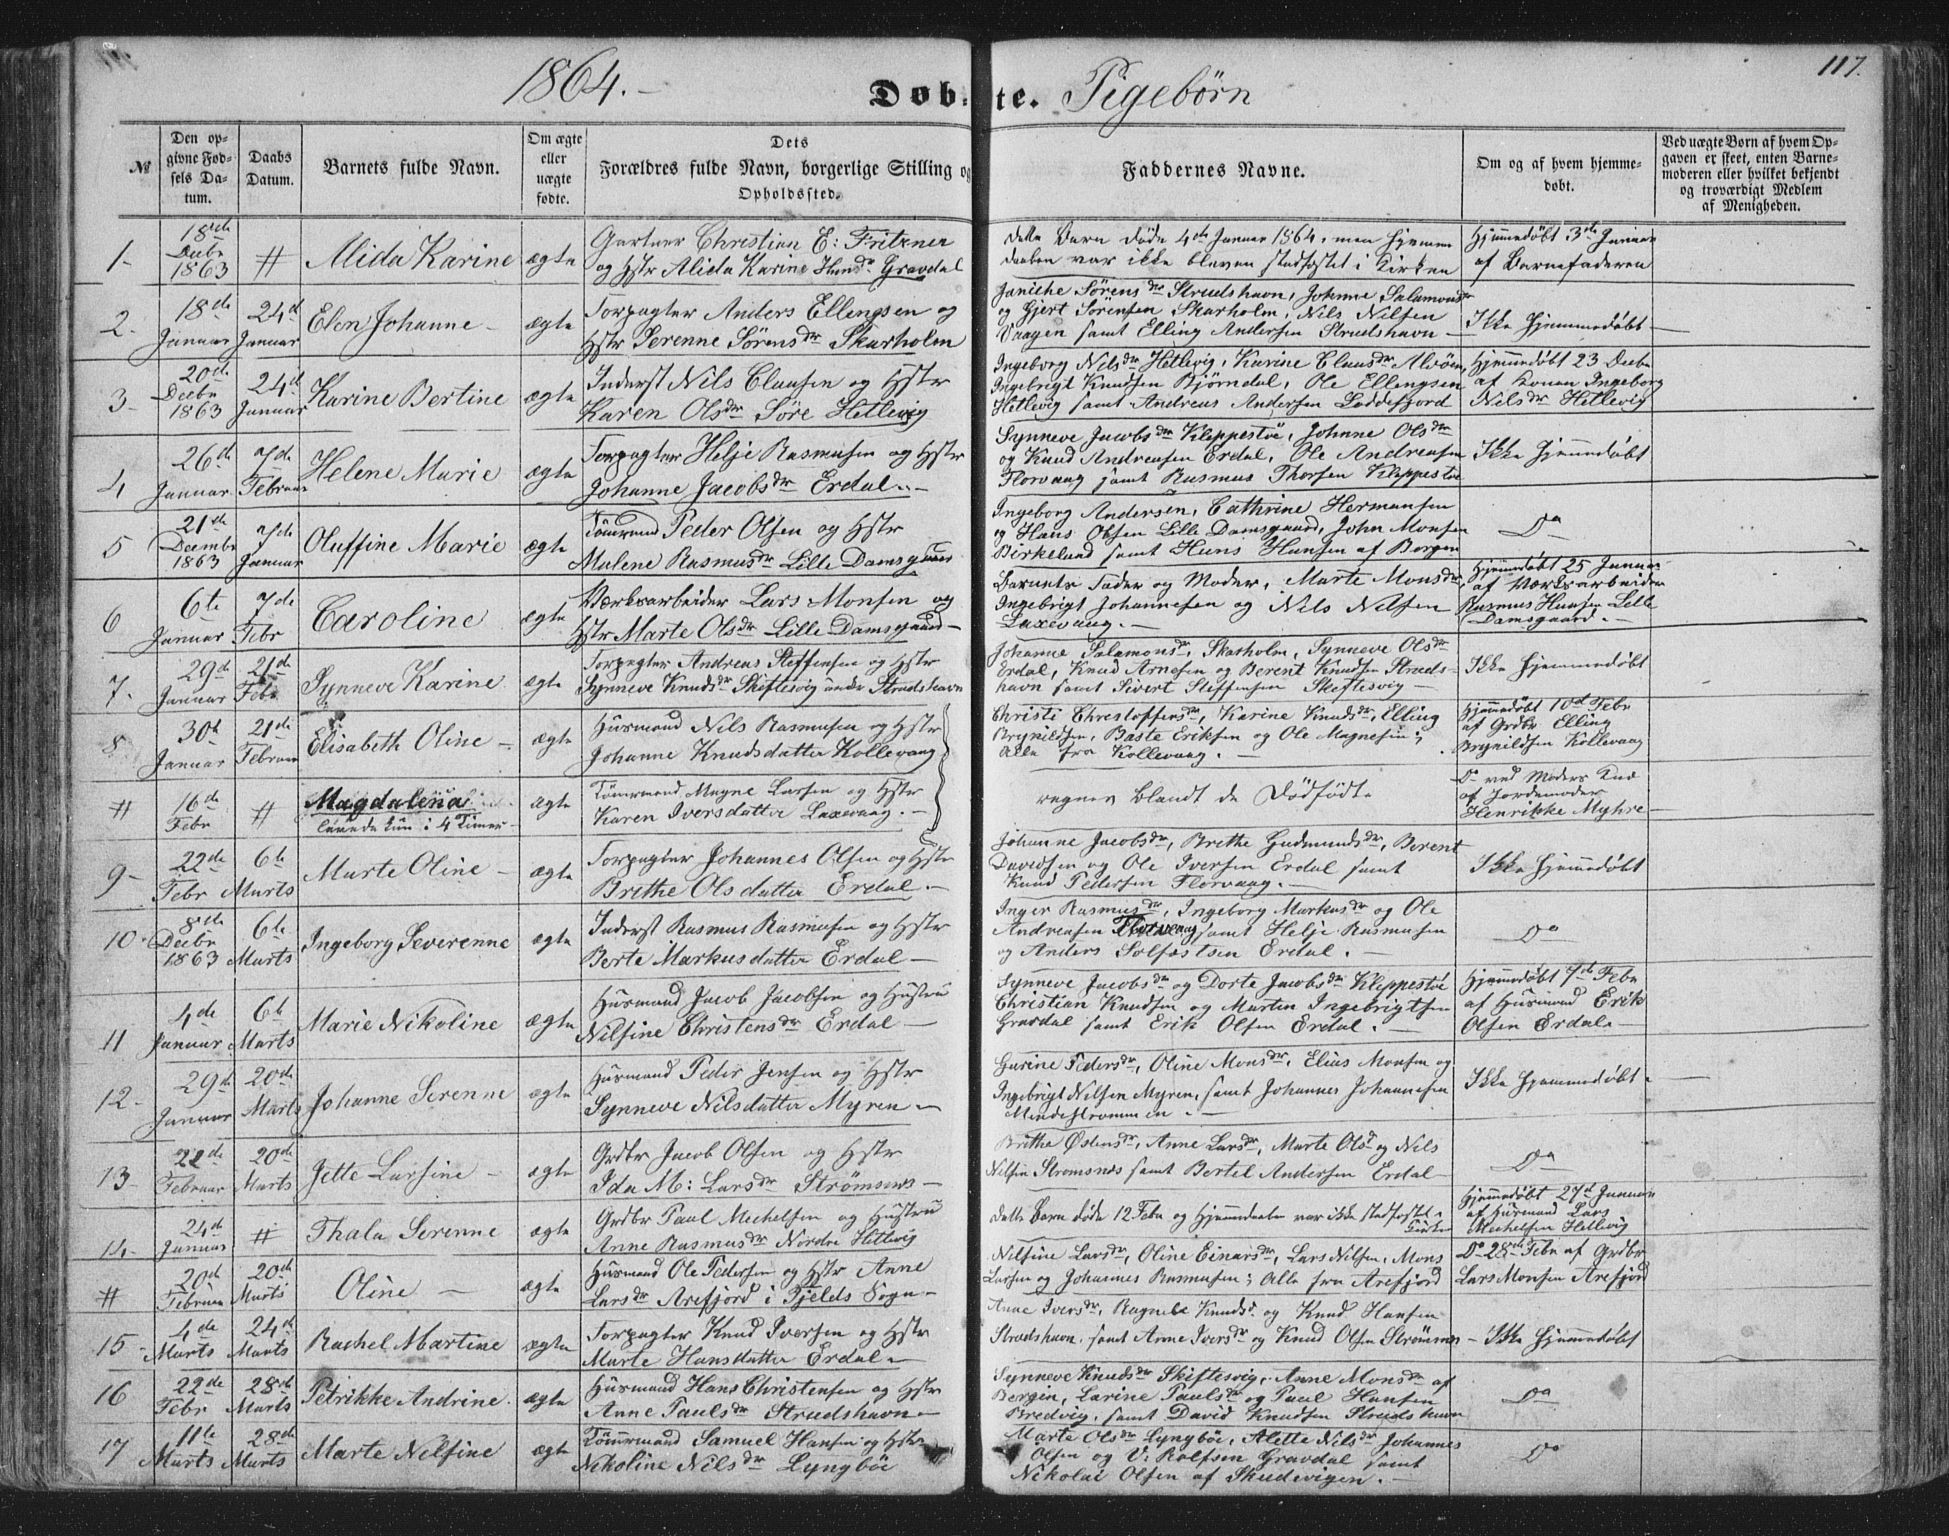 1864.
117.
Døbte. Pigebørn
№ | Den opgivne Fødsels Datum. | Daabs Datum. | Barnets fulde Navn. | Om ægte eller uægte fødte. | Dets Forældres fulde Navn, borgerlige Stilling og Opholdssted. | Faddernes Navne. | Om og af hvem hjemmedøbt. | Ved uægte Børn af hvem Opgaven er skeet, enten Barnemoderen eller hvilket bekjendt og troværdigt Medlem af Menigheden.
1- | 18de Decbr 1863 | # | Alida Karine | ægte | Gartner Christian E: Fritzner
og Hstr Alida Karine Gravdal | dette Barn døde 4de Januar 1864, men hjemmedaaben var ikke bleven stadfæstet i Kirken | Hjemmedøbt 3de Januar
af Barnefaderen
2- | 18de Januar | 24d Januar | Elen Johanne - | ægte | Torpagter Anders Ellengsen og
Hstr Serenne Sørensdr Skarholm | Janikhe Sørensdr Strudshavn, Johanne Salamonsdr
og Gjert Sørensen Skarholm, Nils Nilsen
Vaagen samt Elling Andersen Strudshavn - | Ikke hjemmedøbt -
3- | 20de Decbr 1863 | 24d Januar | Karine Bertine | ægte | Inderst Nils Clausen og Hstr
Karen Olsdr Søre Hetlevig | Ingeborg Nilsdr Hetlevig, Karine Clausdr Alvøen,
Ingebrigt Knudsen Bjørndal, Ole Ellengsen
Hetlevig samt Andreas Andersen Loddefjord | Hjemmedøbt 23 Decbr
af Konen Ingeborg
Nilsdr Hetlevig
4 | 26d Januar | 7de Februar | Helene Marie | ægte | Torpagter Helje Rasmusen og Hstr
Johanne Jacobsdr Erdal.- | Synneve Jacobsdr Kleppestøe, Johanne Olsdr
og Knud Andreasen Erdal, Ole Andreasen
Florvaag samt Rasmus Thorsen Kleppestøe | Ikke hjemmedøbt
5 | 21de Decembr 1863 | 7de Januar | Oluffine Marie | ægte | Tømrmd Peder Olsen og Hstr
Malene Rasmusdr Lille Damsgaard | Ingeborg Andersen, Cathrine Hermansen
og Hans Olsen Lille Damsgaard, John Monsen
Birkeland samt Hans Hansen af Bergen | Do
6 | 6te Januar | 7de Febr | Caroline | ægte | Værksarbeider Lars Monsen og
Hstr Marte Olsdr Lille Damsgaard - | Barnets Fader og Moder, Marte Monsdr,
Ingebrigt Johannesen og Nils Nilsen
Laxevaag. - | Hjemmedøbt 25 Januar
af Værksarbeider
Rasmus Hansen Lille
Damsgaard. -
7. | 29d Januar | 21de Febr | Synneve Karine | ægte | Torpagter Andreas Steffensen og Hstr
Synneve Knudsdr Skiftesvig under Strudshavn | Johanne Salamonsdr, Skarholm, Synneve Olsdr
Erdal, Knud Arnesen og Berent Knudsen Strudshavn samt Sivert Steffensen Skeftesvig - | Ikke hjemmedøbt
8. | 30te Januar | 21de Februar | Elisabeth Oline - | ægte | Husmand Nils Rasmusen og Hstr
Johanne Knudsdatter Kollevaag | Christi Christoffersdr, Karine Knudsdr, Elling
Brynildsen, Baste Eriksen og Ole Magnesen;
Alle fra Kollevaag. - | Hjemmedøbt 10d Febr
af Grdbr Elling
Brynildsen Kollevaag
# | 16d Febr | # | Magdalena
levede kun i 4 Timer - | ægte | Tømrmand Magne Larsen og Hstr
Karen Iversdatter Laxevaag. - | regnes blandt de Dødfødte | Do ved Moders Liv
af Jordemoder
Henrikke Myhre -
9- | 22de Febr | 6te Marts | Marte Oline - | ægte | Torpagter Johannes Olsen og Hstr
Brithe Olsdatter Erdal. - | Johanne Jacobsdr, Brithe Gudmundsdr, Berent
Davidsen og Ole Iversen Erdal samt
Knud Pedersen Florvaag. - | Ikke hjemmedøbt
10- | 8de Decbr 1863 | 6te Marts | Ingeborg Severenne | ægte | Inderst Rasmus Rasmusen og Hstr
Berte Markusdatter Erdal - | Inger Rasmusdr, Ingeborg Markusdr og Ole
Andreasen Florvaag samt Helje Rasmusen
og Anders Solfæstsen Erdal. - | Do
11 | 4de Januar | 6te Marts | Marie Nikoline | ægte | Husmand Jacob Jacobsen og Hustru
Nilsine Christensdr Erdal - | Synneve Jacobsdr og Dorte Jacobsdr Kleppestøe
Christian Knudsen og Martin Ingebrigtsen
Gravdal samt Erik Olsen Erdal. - | Hjemmedøbt 7de Febr
af Husmand Erik
Olsen Erdal -
12- | 29d Januar | 20de Marts | Johanne Serenne | ægte | Husmand Peder Jensen og Hstr
Synneve Nilsdatter Myren - | Gurine Pedersdr, Oline Monsdr, Elias Monsen og
Ingebrigt Nilsen Myren, samt Johannes Johannesen
Mindestrømmen. - | Ikke hjemmedøbt -
13- | 22de Februar | 20de Marts | Jette Larsine - | ægte | Grdbr Jacob Olsen og Hstr
Ida M: Larsdr Strømsnes - | Brithe Østensdr, Anne Larsdr, Marte Olsd og Nils
Nilsen Strømsnes samt Bertel Andersen Erdal - | Do
14. | 24d Januar | # | Thala Serenne | ægte | Grdbr Paul Mechelsen og Hustru
Anne Rasmusdr Nordre Hetlevig | dette Barn døde 12 Febr og hjemmedaaben var ikke stadfæstet i Kirken | Hjemmedøbt 27d Januar
af Husmand Lars
Mechelsen Hetlevig
# | 20d Februar | 20de Marts | Oline - | ægte | Husmand Ole Pedersen og Hstr Anne
Larsdr Arefjord i Fjelds Sogn - | Nilsine Larsdr, Oline Einarsdr, Lars Nilsen, Mons
Larsen og Johannes Rasmusen; Alle fra Arefjord | Do 28de Febr af Grdbr
Lars Monsen Arefjord
15 | 4de Marts | 24d Marts | Rachel Martine | ægte | Torpagter Knud Iversen og Hstr
Marte Hansdatter Erdal - | Anne Iversdr, Ragnele Knudsd og Knud Hansen
Strudshavn, samt Anne Iversdr og Knud Olsen Strømsnes | - Ikke hjemmedøbt
16 | 22de Febr | 28de Marts | Petrikke Andrine. | ægte | Husmand Hans Christensen og Hstr
Anne Paulsdr Strudshavn - | Synneve Knudsdr Skiftesvig, Anne Monsdr af
Bergen, Larine Paulsdr og Paul Hansen
Bredvig, samt David Knudsen Strudshavn | Do
17 | 11te Marts | 28de Marts | Marte Nilsine | ægte | Tømrmand Samuel Hansen og Hstr
Nikoline Nilsdr Lyngbøe | Marte Olsdr Lyngbøe, Alette Nilsdr Johannes
Olsen og V: Rolfsen Gravdal samt
Nikolai Olsen af Skudevigen. - | Do